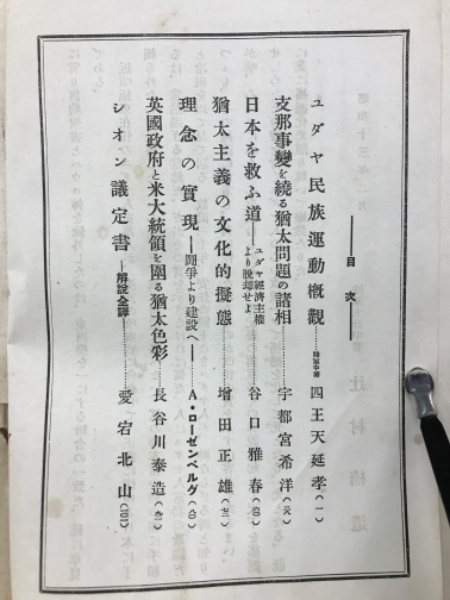 目次
ユダヤ民族運動概觀 陸軍中將 四王天延孝(一)
支那事變を繞る猶太問題の諸相 宇都宮希洋(元)
日本を救ふ道 ユダヤ經濟主權より脫却せよ 谷口雅春(四〇)
猶太主義の文化的擬態 增田正雄(七三)
理念の實現 鬪爭より建設へ A・ローゼンベルグ
英國政府と米大統領を圍る猶太色彩 長谷川泰造
シオン議定書 解說全譯 愛宕北山(一〇一)